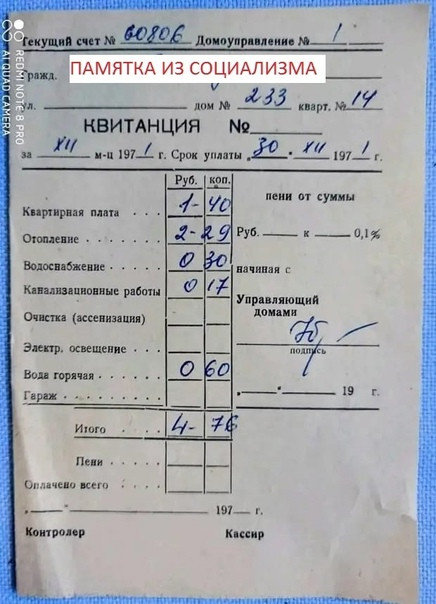 Текущий счет № 60806 Домоуправление № 1
Гражд.
ПАМЯТКА ИЗ СОЦИАЛИЗМА
ул. дом № 233 кварт. № 14
КВИТАНЦИЯ №
за XII м-ц 1971 г. Срок уплаты „30" XII 1971 г.
Руб. коп.
Квартирная плата 1-40
пени от суммы
Отопление 2-29
Руб. к 0,1%
Водоснабжение 0 30
начиная с
Канализационные работы 0 17
Управляющий домами
Очистка (ассенизация)
подпись
Электр. освещение
Вода горячая 0 60
„ " 19 г.
Гараж
Итого 4-76
Пени
Оплачено всего
„ " 197 г.
Контролер Кассир
REDMI NOTE 8 PRO
AI QUAD CAMERA